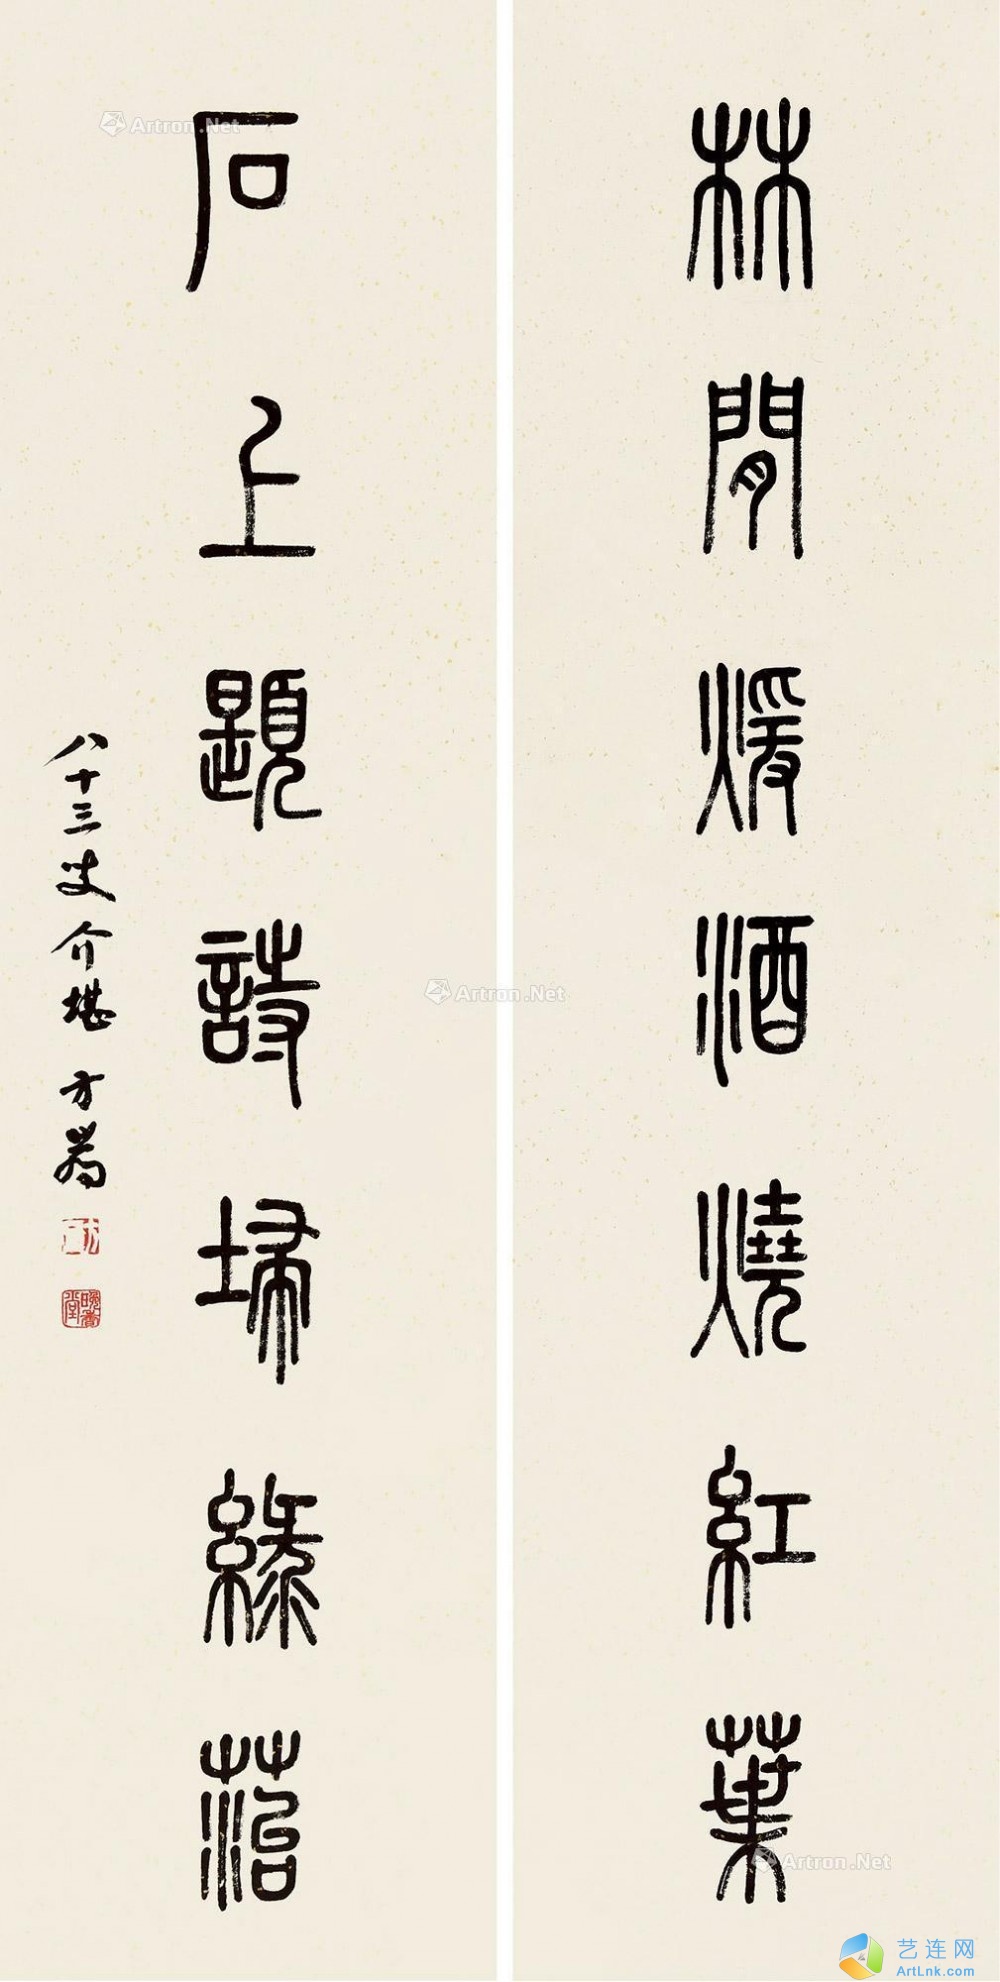 林閒煖酒燒紅葉
石上題詩埽綠菭
八十三叟介堪方
Artron.Net
Artron.Net
Artron.Net
艺连网
ArtLnk.com